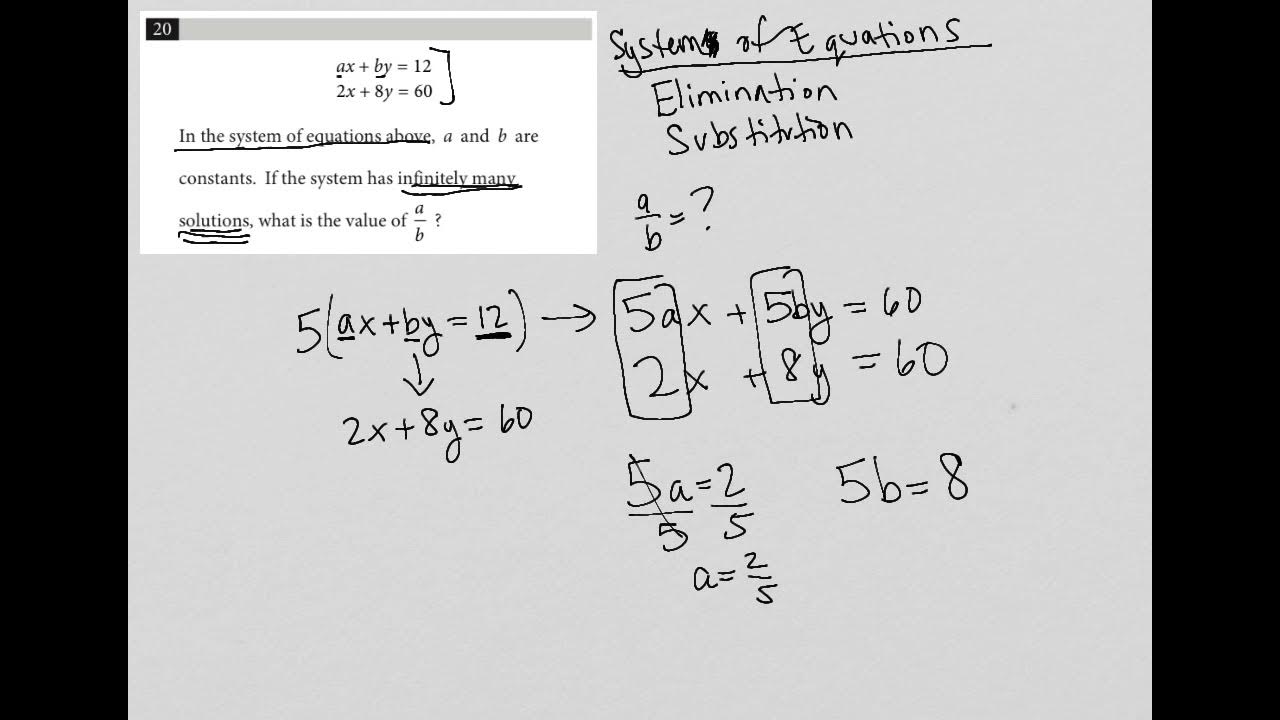 20
ax + by = 12
2x + 8y = 60
In the system of equations above, a and b are
constants. If the system has infinitely many
solutions, what is the value of a/b ?
Systems of Equations
Elimination
Substitution
a/b = ?
5(ax+by = 12) → 5ax + 5by = 60
2x + 8y = 60
↓
2x+8y = 60
5a/5 = 2/5
5b = 8
a = 2/5